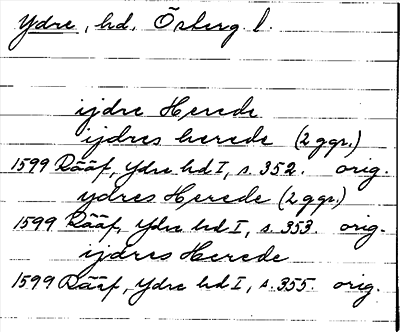 Ydre, hd. Österg. l.
ijdre Herede
ijdres herede (2 ggr.)
1599 Rääf, Ydre hd I, s. 352. orig.
ydres Herede (2 ggr.)
1599 Rääf, Ydre hd I, s. 353. orig.
ijdres Herede
1599 Rääf, Ydre hd I, s. 355. orig.